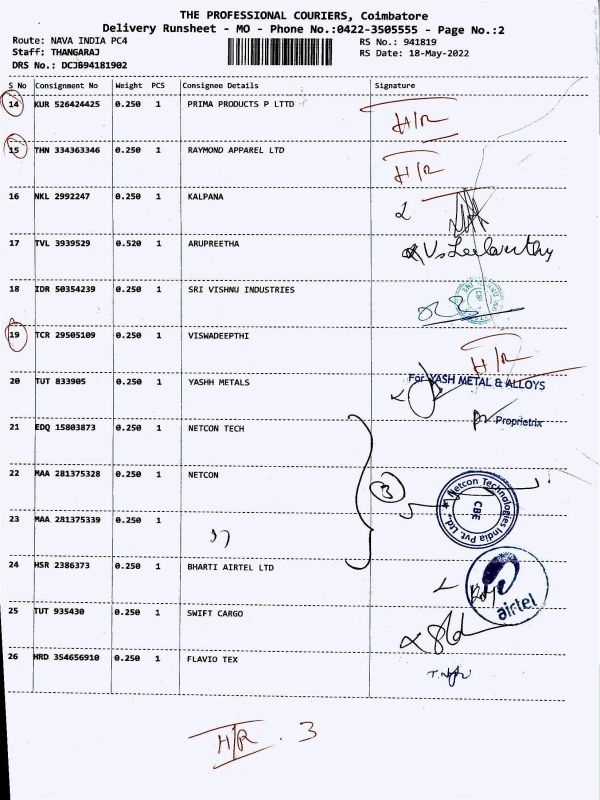 THE PROFESSIONAL COURIERS, Coimbatore
Delivery Runsheet - MO - Phone No.:0422-3505555 - Page No.:2
Route: NAVA INDIA PC4 RS No.: 941819
Staff: THANGARAJ RS Date: 18-May-2022
DRS No.: DCJB94181902
S No Consignment No Weight PCS Consignee Details Signature
14 KUR 526424425 0.250 1 PRIMA PRODUCTS P LTTD H/R
15 THN 334363346 0.250 1 RAYMOND APPAREL LTD H/R
16 NKL 2992247 0.250 1 KALPANA
17 TVL 3939529 0.520 1 ARUPREETHA
18 IDR 50354239 0.250 1 SRI VISHNU INDUSTRIES
19 TCR 29505109 0.250 1 VISWADEEPTHI H/R
20 TUT 833905 0.250 1 YASHH METALS For YASH METAL & ALLOYS
Proprietrix
21 EDQ 15803873 0.250 1 NETCON TECH
22 MAA 281375328 0.250 1 NETCON 3
Netcon Technologies India Pvt. Ltd. CBE
23 MAA 281375339 0.250 1
24 HSR 2386373 0.250 1 BHARTI AIRTEL LTD
airtel
25 TUT 935430 0.250 1 SWIFT CARGO
26 HRD 354656910 0.250 1 FLAVIO TEX
H/R . 3